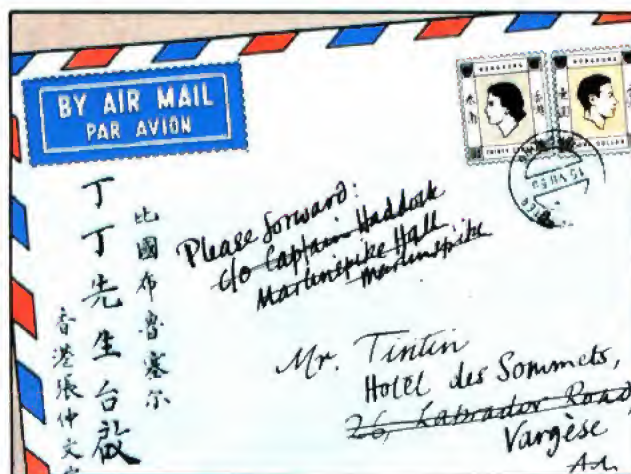 BY AIR MAIL
PAR AVION
HONGKONG
HONGKONG
比國布魯塞尔
丁丁先生台啟
香港張仲文
Please forward:
c/o Captain Haddock
Marlinspike Hall
Marlinspike
Mr. Tintin
Hotel des Sommets,
26, Labrador Road
Vargèse